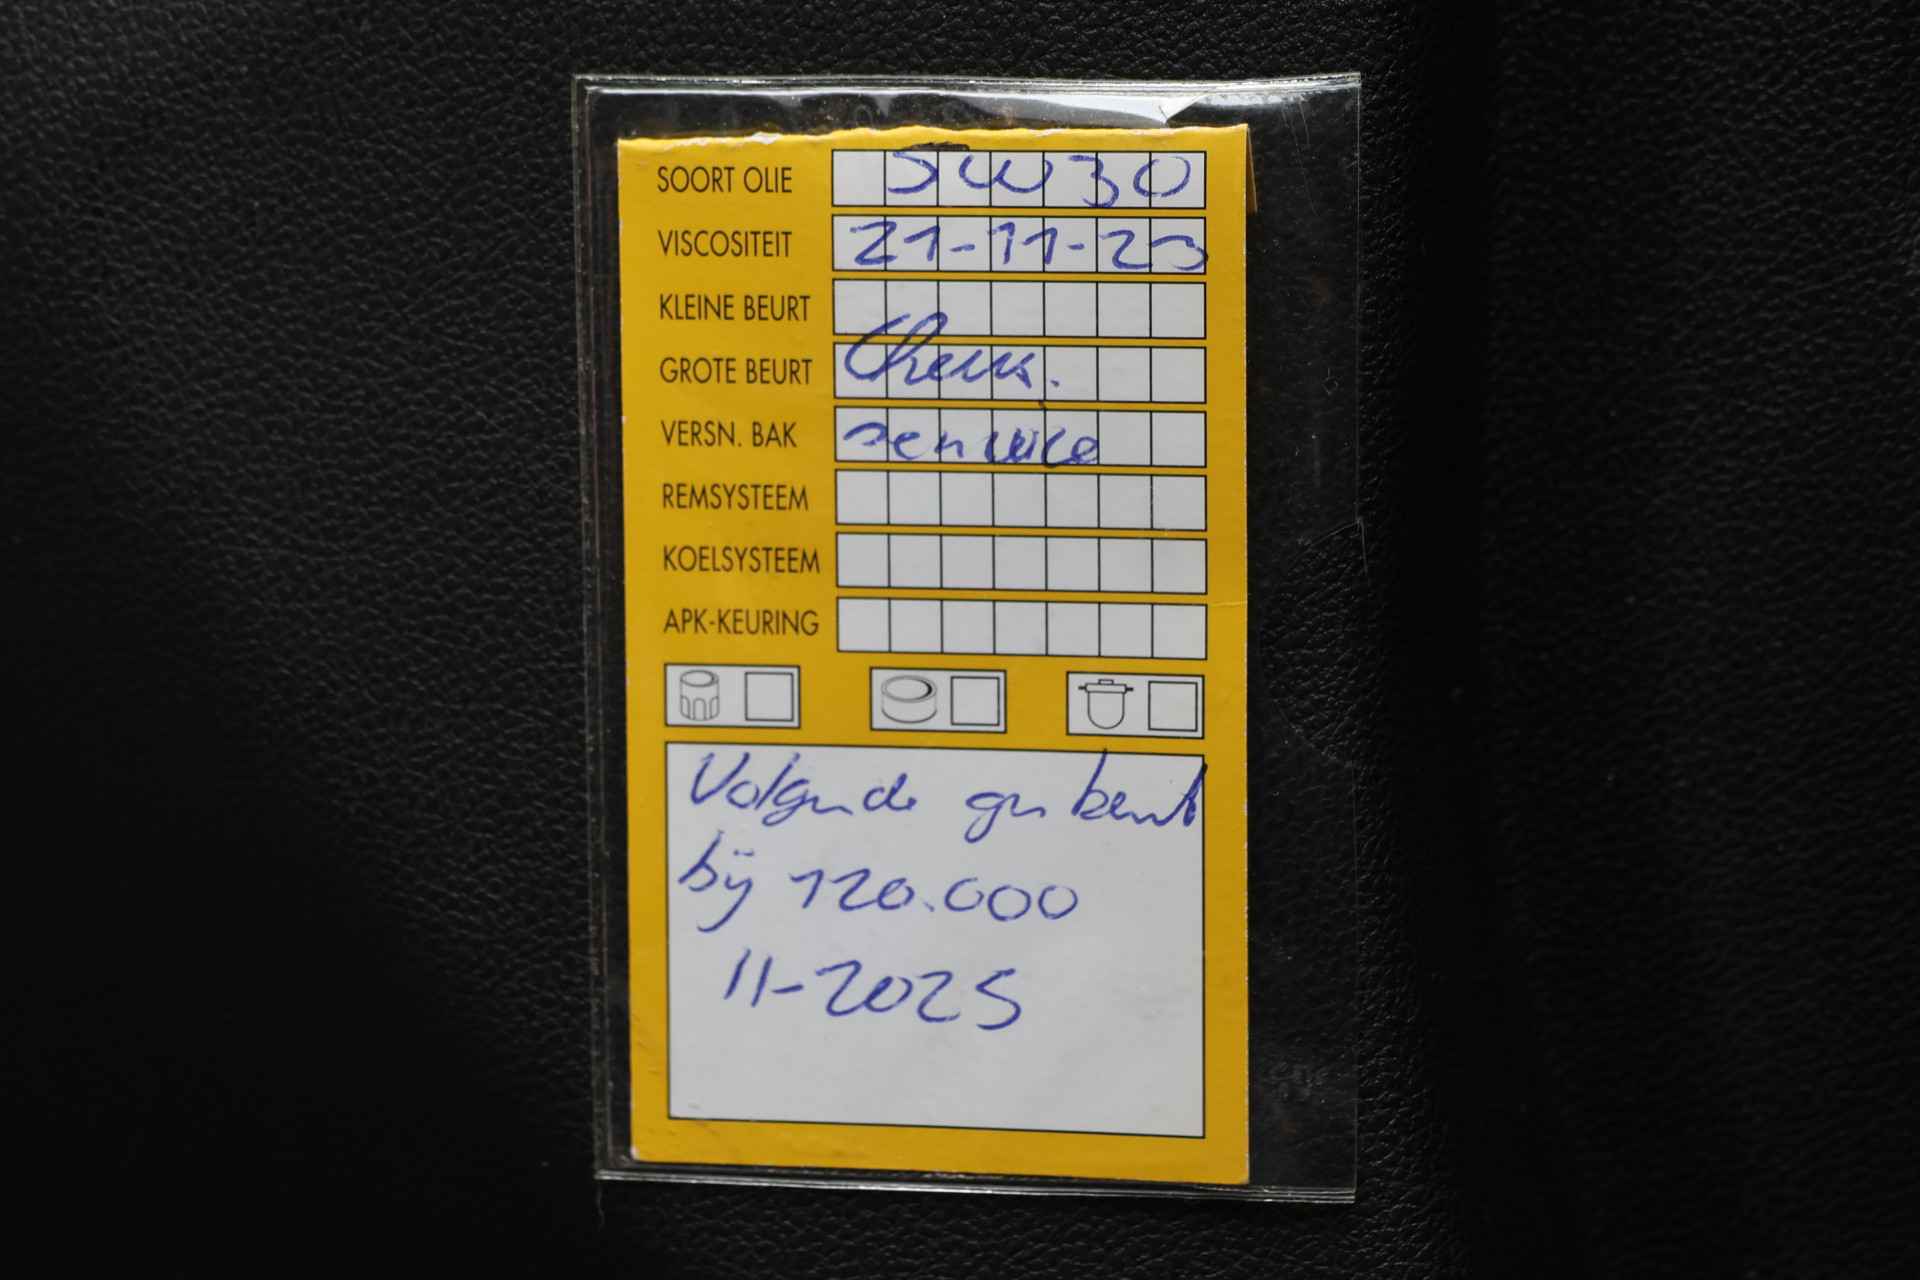 SOORT OLIE 5W30
VISCOSITEIT 21-11-23
KLEINE BEURT
GROTE BEURT Check.
VERSN. BAK service
REMSYSTEEM
KOELSYSTEEM
APK-KEURING
Volgende beurt
bij 120.000
11-2025